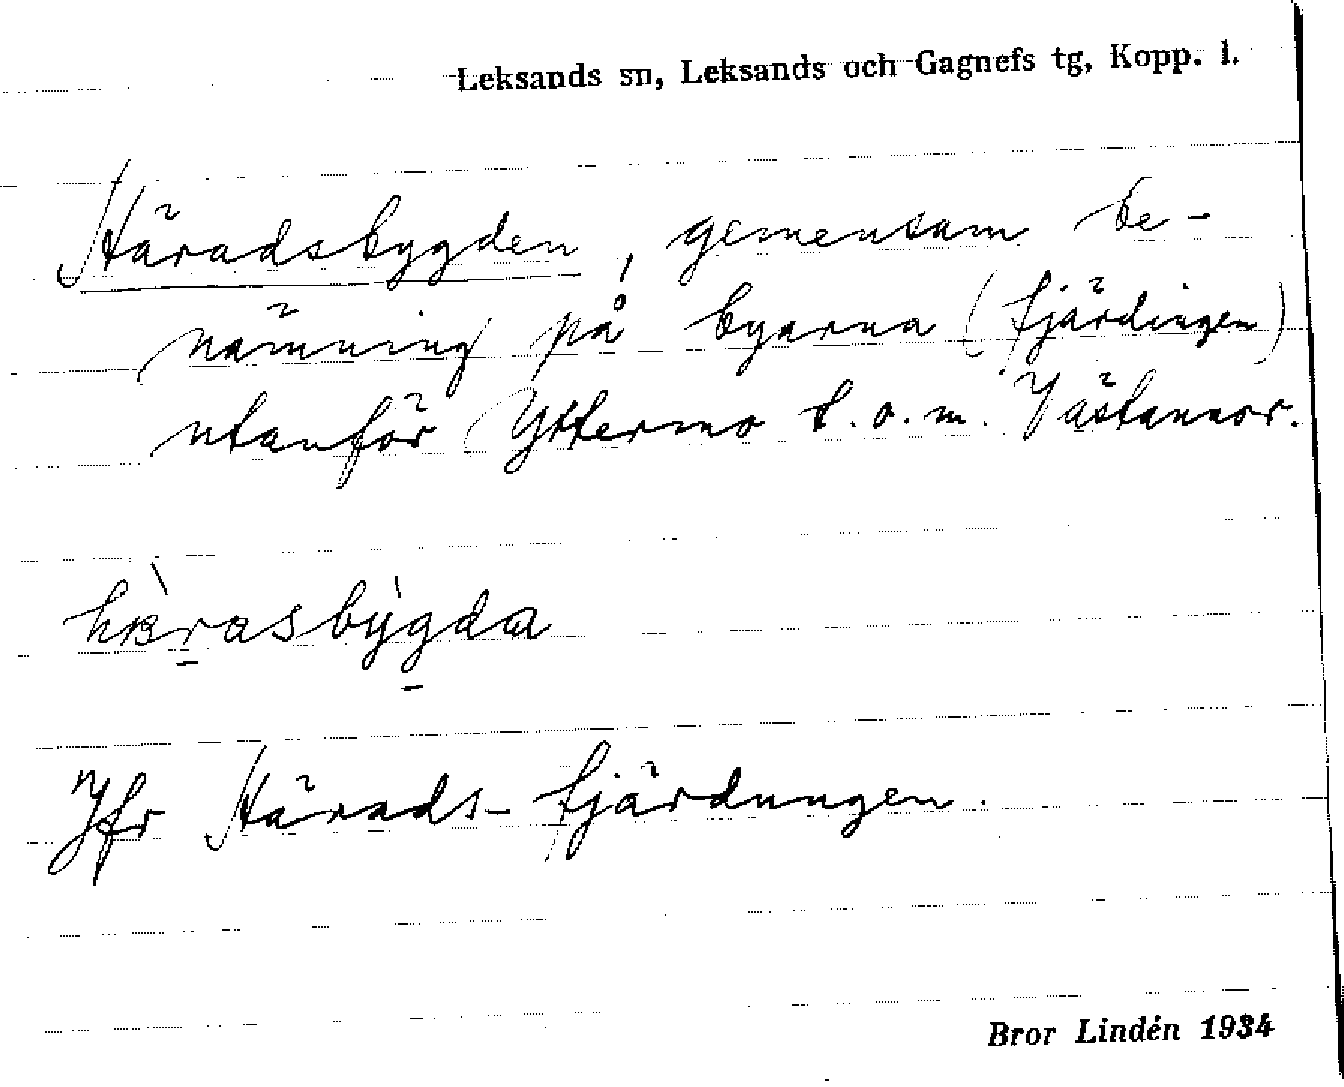 Leksands sn, Leksands och Gagnefs tg, Kopp. l.
Häradsbygden, gemensam be-
nämning på byarna (fjärdingen)
utanför Yttermo t.o.m. Västannor.
hæ̀rasbýgda
Jfr Härads-fjärdungen.
Bror Lindén 1934